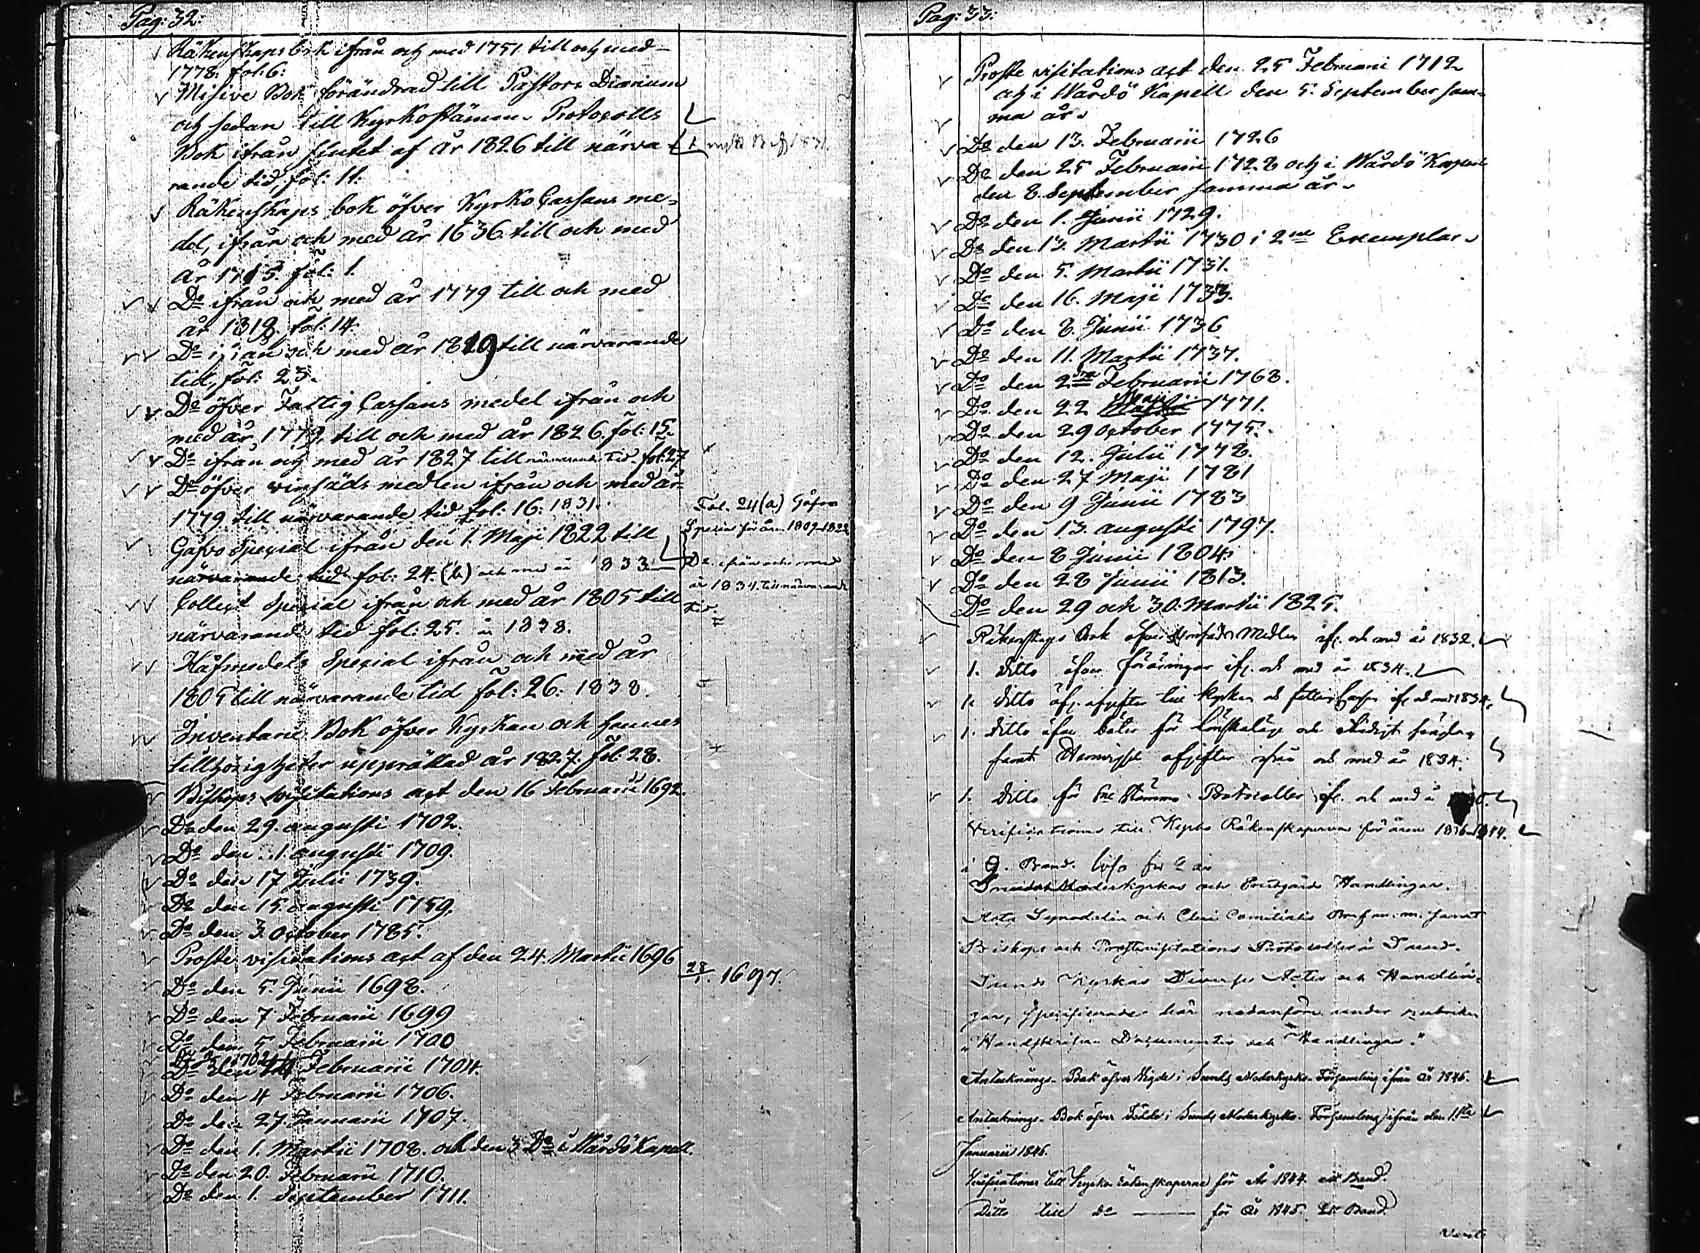 Pag: 32:
Räkenskaps bok ifrån och med 1751 till och med
1778. fol: 6:
Missive Bok förändrad till Pastors Diarium
och sedan till Kyrkostämmo Protocolls
Bok ifrån slutet af år 1826 till närva-
rande tid, fol: 11.
Räkenskaps bok öfver Kyrko Cassans me-
del, ifrån och med år 1636 till och med
år 1715. fol: 1.
Do ifrån och med år 1779 till och med
år 1818. fol: 14.
Do ifrån och med år 1819 till närvarande
tid, fol: 23.
Do öfver Fattig Cassans medel ifrån och
med år 1779, till och med år 1826, fol: 15.
Do ifrån och med år 1827 till närvarande tid fol: 27
Do öfver vinsäds medlen ifrån och med år
1779 till närvarande tid fol: 16. 1831.
Fol. 24 (a) Gåfvo
Special för åren 1809-1822
Gåfvo Special ifrån den 1. Maji 1822 till
närvarande tid fol: 24. (b) och med år 1833
Do ifrån och med
år 1834 till närvarande
tid.
Collect Special ifrån och med år 1805 till
närvarande tid fol: 25. 1838.
Håfmedels Special ifrån och med år
1805 till närvarande tid fol: 26: 1838.
Inventarii Bok öfver Kyrkan och hennes
tillhörigheter upprättad år 1827. fol: 28.
Biskops visitations act den 16 Februarii 1692.
Do den 29. augusti 1702.
Do den 1. augusti 1709.
Do den 17 Julii 1739.
Do den 15. augusti 1759.
Do den 3. October 1785.
Proste visitations act af den 24. Martii 1696
1697.
Do den 5. Junii 1698.
Do den 7 Februarii 1699
Do den 5 Februarii 1700
Do den Februarii 1704.
Do den 4 Februarii 1706.
Do den 27 Januarii 1707.
Do den 1. Martii 1708. och den 3 Do i Wårdö Kapell.
Do den 20. Februarii 1710.
Do den 1. September 1711.
Pag: 33:
Proste visitations act den 25 Februarii 1712
och i Wårdö Kapell den 5. September sam-
ma år.
Do den 13. Februarii 1726
Do den 25 Februarii 1728 och i Wårdö Kapell
den 8. September samma år.
Do den 1. Junii 1729.
Do den 13. Martii 1730 i 2ne Exemplar.
Do den 5. Martii 1731.
Do den 16. Maji 1733.
Do den 8. Junii 1736
Do den 11. Martii 1737.
Do den 2 Februarii 1768.
Do den 22 Maji 1771.
Do den 29 October 1775.
Do den 12. Julii 1778.
Do den 27 Maji 1781
Do den 9 Junii 1783
Do den 13. augusti 1797.
Do den 8 Junii 1804.
Do den 28 Junii 1813.
Do den 29 och 30. Martii 1825.
Räkenskaps Bok öfver Medlen ifr. och med år 1832.
1. Ditto öfver föräringar ifr. och med år 1834.
1. Ditto öfv. afgifter till Kyrkan och ifr. och med 1834.
1. Ditto öfver böter för och
samt afgifter ifrån och med år 1834.
1. Ditto för Protocoller ifr. och med år
Verificationer till Kyrko Räkenskaperna för åren
i 9 Band.
Moderkyrkas och Handlingar.
Acta och Cleri Comitialis m. m. samt
Biskops och Prostevisitations Protocoller i Sund.
Sunds Kyrkas Diverse Acter och Handlin-
gar, specificerade här nedanföre under rubriken
"Handskrifne Documenter och Handlingar."
Antecknings-Bok öfver Vigde i Sunds Moderkyrko-Församling ifrån år 1846.
Antecknings-Bok öfver Födde i Sunds Moderkyrko-Församling ifrån den 1sta
Januarii 1846.
Verificationer till Kyrko räkenskaperna för år 1844. ett Band.
Ditto till do för år 1845. Ett Band.